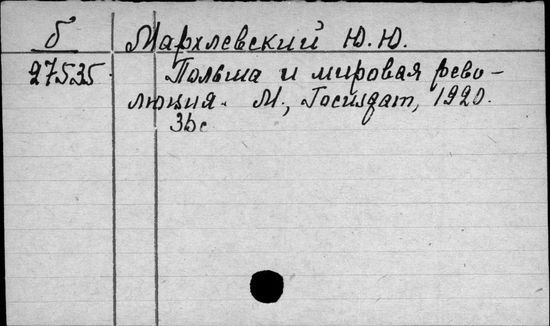 б Мархлевский Ю.Ю.
27535 Польша и мировая рево-
люция. М., Госиздат, 1920.
36с